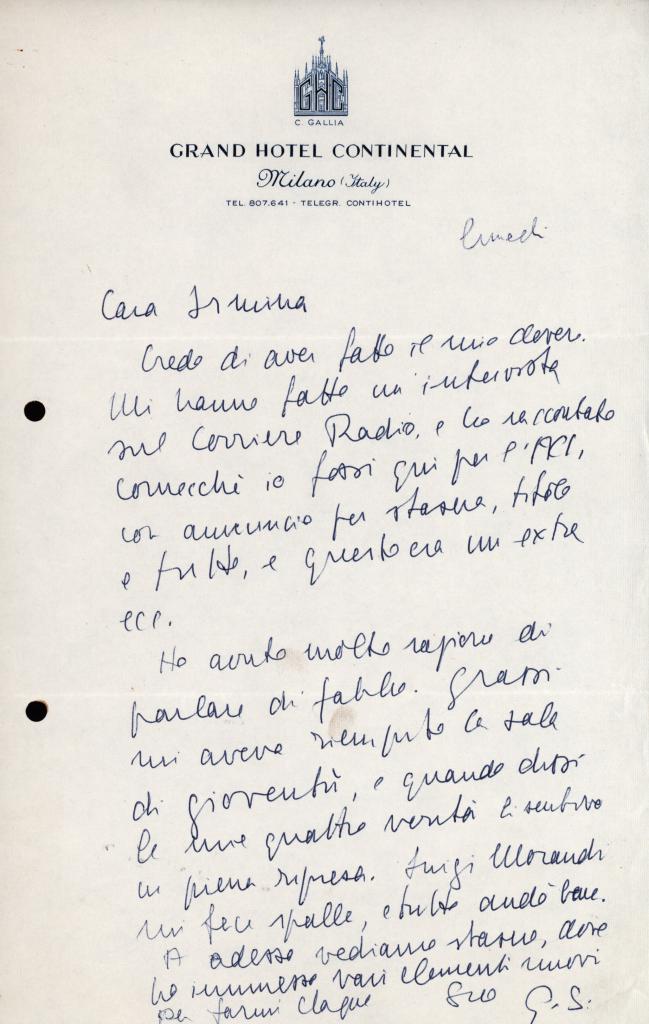 GHC
C. GALLIA
GRAND HOTEL CONTINENTAL
Milano (Italy)
TEL. 807.641 - TELEGR. CONTIHOTEL
Lunedì
Cara Irmina
Credo di aver fatto il mio dovere.
Mi hanno fatto un'intervista
sul Corriere Radio, e ho raccontato
comecchè io fossi qui per l'ACI,
con annuncio per stasera, titolo
e tutto, e questo era un extra
ecc.
Ho avuto molto ragione di
parlare di Grassi
mi aveva riempito la sala
di gioventù, e quando dissi
le mie quattro verità li sentivo
in piena ripresa. Luigi Morandi
mi fece spalla, e tutto andò bene.
E adesso vediamo stasera, dove
ho immesso vari elementi nuovi
per farmi claque
Suo G. S.